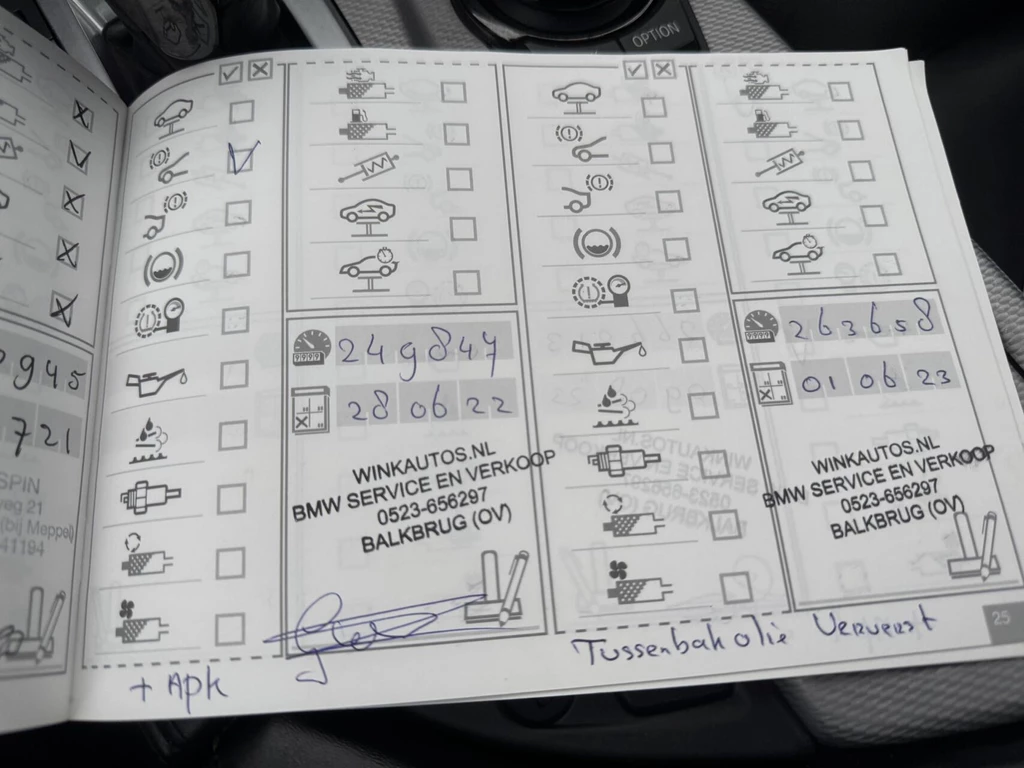 OPTION
945
721
SPIN
weg 21
(bij Meppel)
41194
249847
28 06 22
WINKAUTOS.NL
BMW SERVICE EN VERKOOP
0523-656297
BALKBRUG (OV)
+ Apk
263658
01 06 23
WINKAUTOS.NL
BMW SERVICE EN VERKOOP
0523-656297
BALKBRUG (OV)
Tussenbak olie Ververst
25